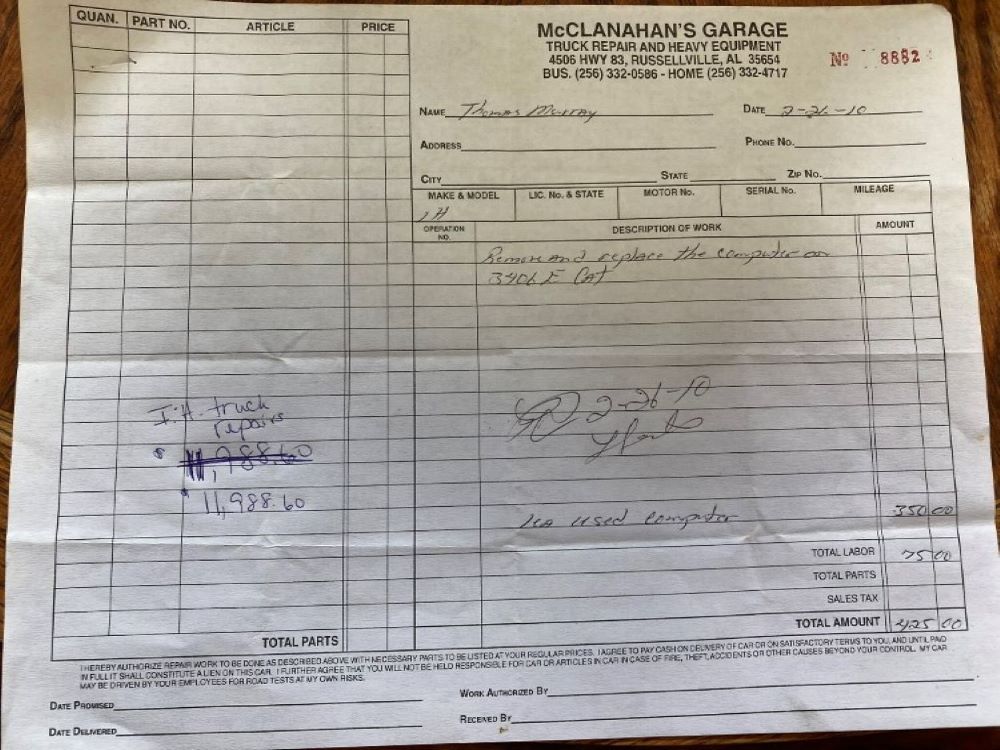 QUAN. PART NO. ARTICLE PRICE
McCLANAHAN'S GARAGE
TRUCK REPAIR AND HEAVY EQUIPMENT
4506 HWY 83, RUSSELLVILLE, AL 35654
BUS. (256) 332-0586 - HOME (256) 332-4717
No 8882
NAME Thomas Murray DATE 2-26-10
ADDRESS PHONE NO.
CITY STATE ZIP NO.
MAKE & MODEL LIC. No. & STATE MOTOR No. SERIAL No. MILEAGE
IH
OPERATION NO. DESCRIPTION OF WORK AMOUNT
Remove and replace the computer on
3406 E CAT
I.H. truck
repairs
$ 11,988.60
$ 11,988.60
2-26-10
used computer 350 00
TOTAL LABOR 75 00
TOTAL PARTS
SALES TAX
TOTAL AMOUNT 425 00
TOTAL PARTS
I HEREBY AUTHORIZE REPAIR WORK TO BE DONE AS DESCRIBED ABOVE WITH NECESSARY PARTS TO BE LISTED AT YOUR REGULAR PRICES. I AGREE TO PAY CASH ON DELIVERY OF CAR OR ON SATISFACTORY TERMS TO YOU, AND UNTIL PAID
IN FULL IT SHALL CONSTITUTE A LIEN ON THIS CAR. I FURTHER AGREE THAT YOU WILL NOT BE HELD RESPONSIBLE FOR CAR OR ARTICLES IN CAR IN CASE OF FIRE, THEFT, ACCIDENTS OR OTHER CAUSES BEYOND YOUR CONTROL. MY CAR
MAY BE DRIVEN BY YOUR EMPLOYEES FOR ROAD TESTS AT MY OWN RISKS.
DATE PROMISED WORK AUTHORIZED BY
DATE DELIVERED RECEIVED BY